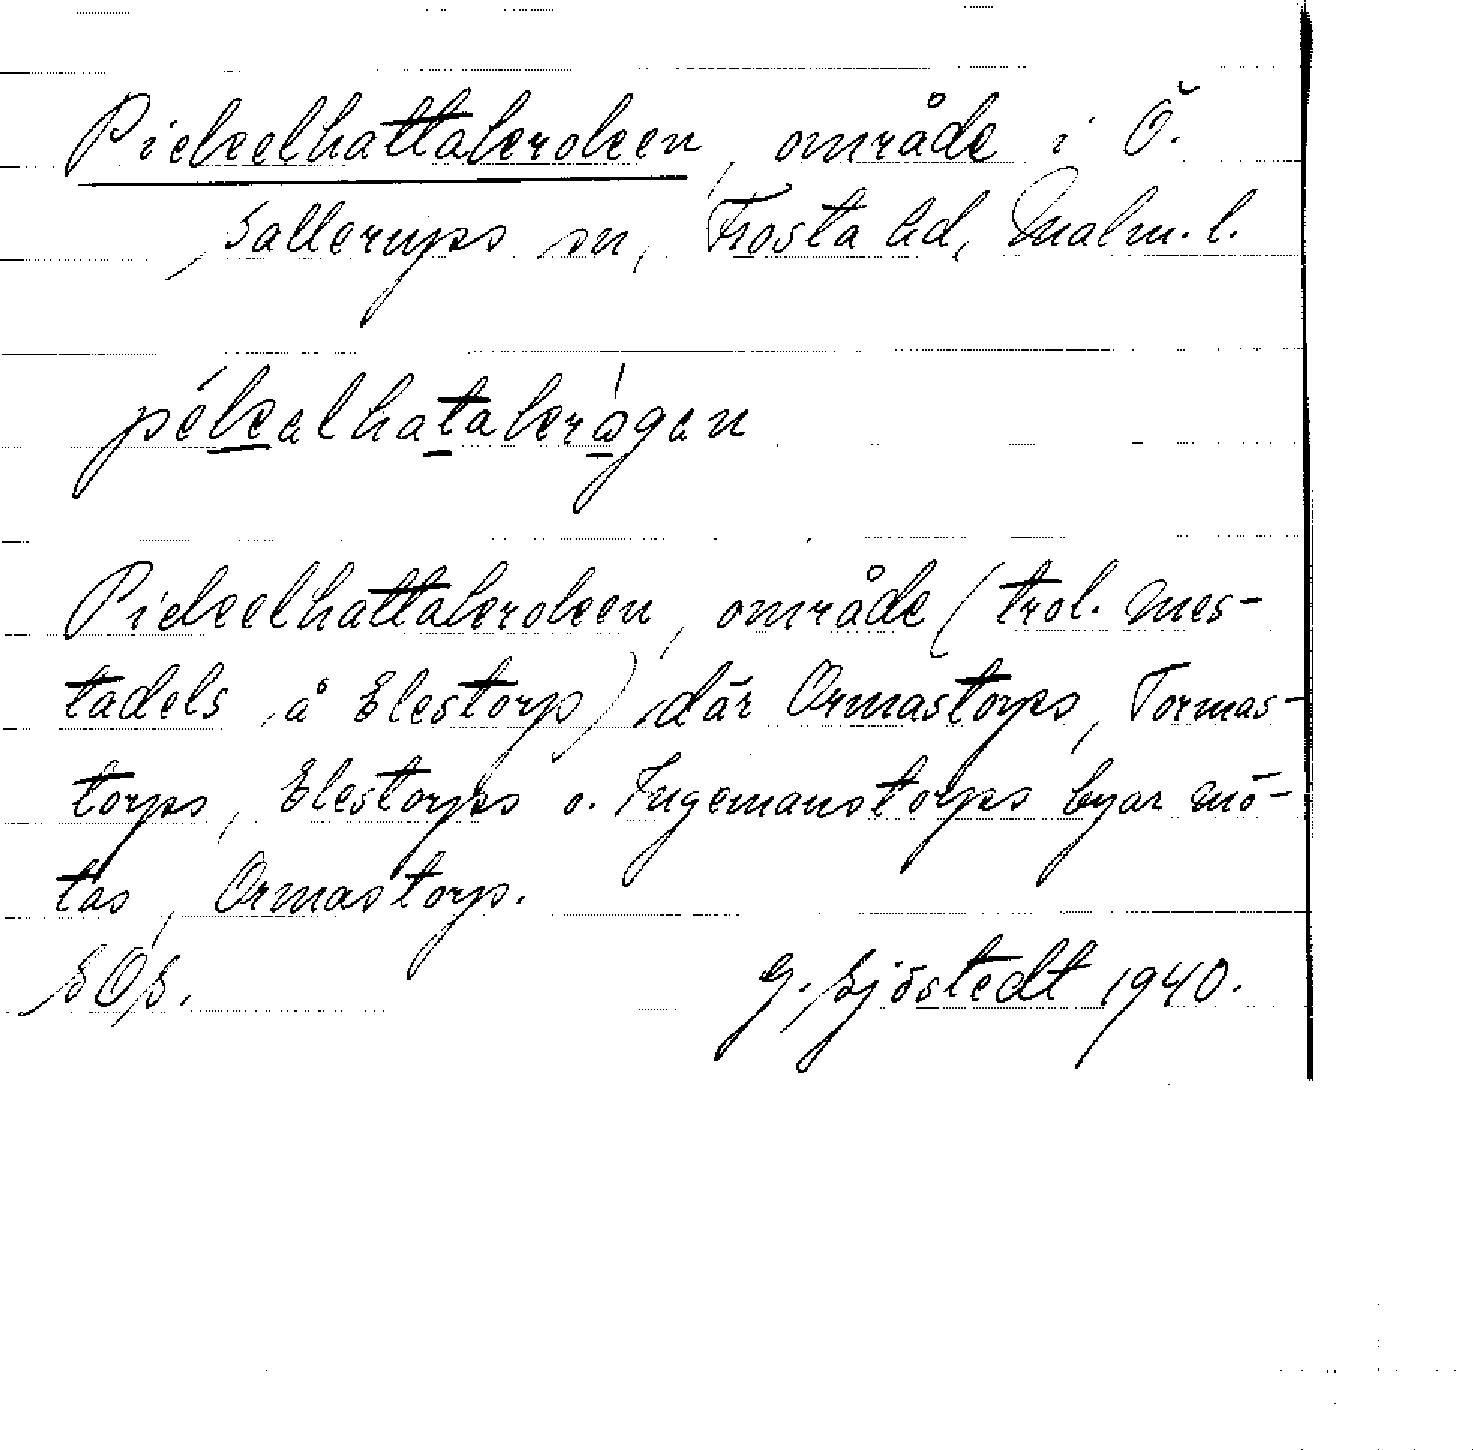 Pickelhattakroken, område i Ö.
Sallerups sn, Frosta hd, Malm. l.
pékalhatakrågan
Pickelhattakroken, område (trol. mes-
tadels å Elestorp) där Ormastorps, Tormas-
torps, Elestorps o. Ingemanstorps byar mö-
tas, Ormastorp.
SOS.
G. Sjöstedt 1940.